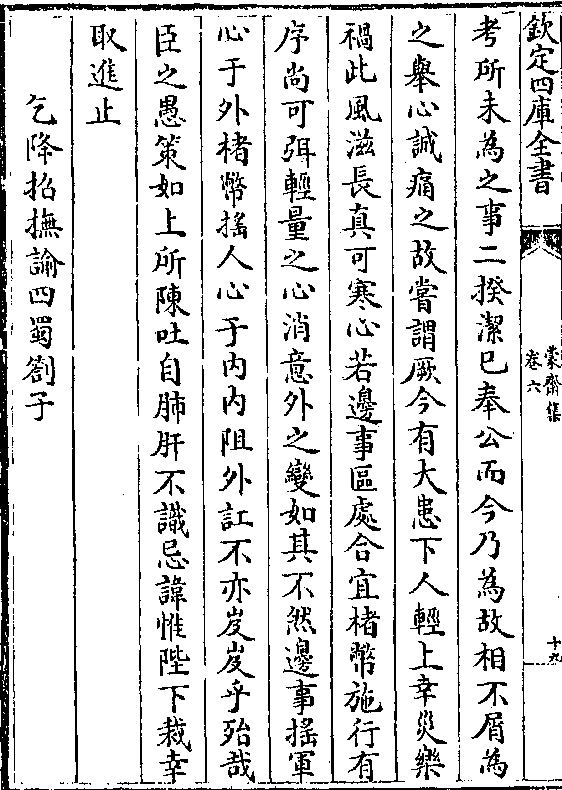 欽定四庫全書
蒙齋集
卷六
十九
考所未為之事二揆潔已奉公而今乃為故相不屑為
之舉心誠痛之故嘗謂厥今有大患下人輕上幸災樂
禍此風滋長真可寒心若邊事區處合宜楮幣施行有
序尚可弭輕量之心消意外之變如其不然邊事搖軍
心于外楮幣搖人心于内内阻外訌不亦岌岌乎殆哉
臣之愚策如上所陳吐自肺肝不識忌諱惟陛下裁幸
取進止
乞降招撫諭四蜀劄子